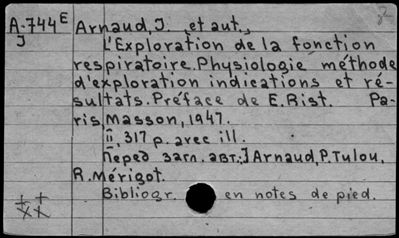 A-744E Arnaud, J. et aut.,
J L'Exploration de la fonction
respiratoire. Physiologie méthode
d'exploration indications et ré-
sultats. Préface de E. Rist. Pa-
ris, Masson, 1947.
II, 317 p. avec ill.
Перед загл. авт.:] Arnaud, P. Tulou,
R. Mérigot.
Bibliogr. en notes de pied.